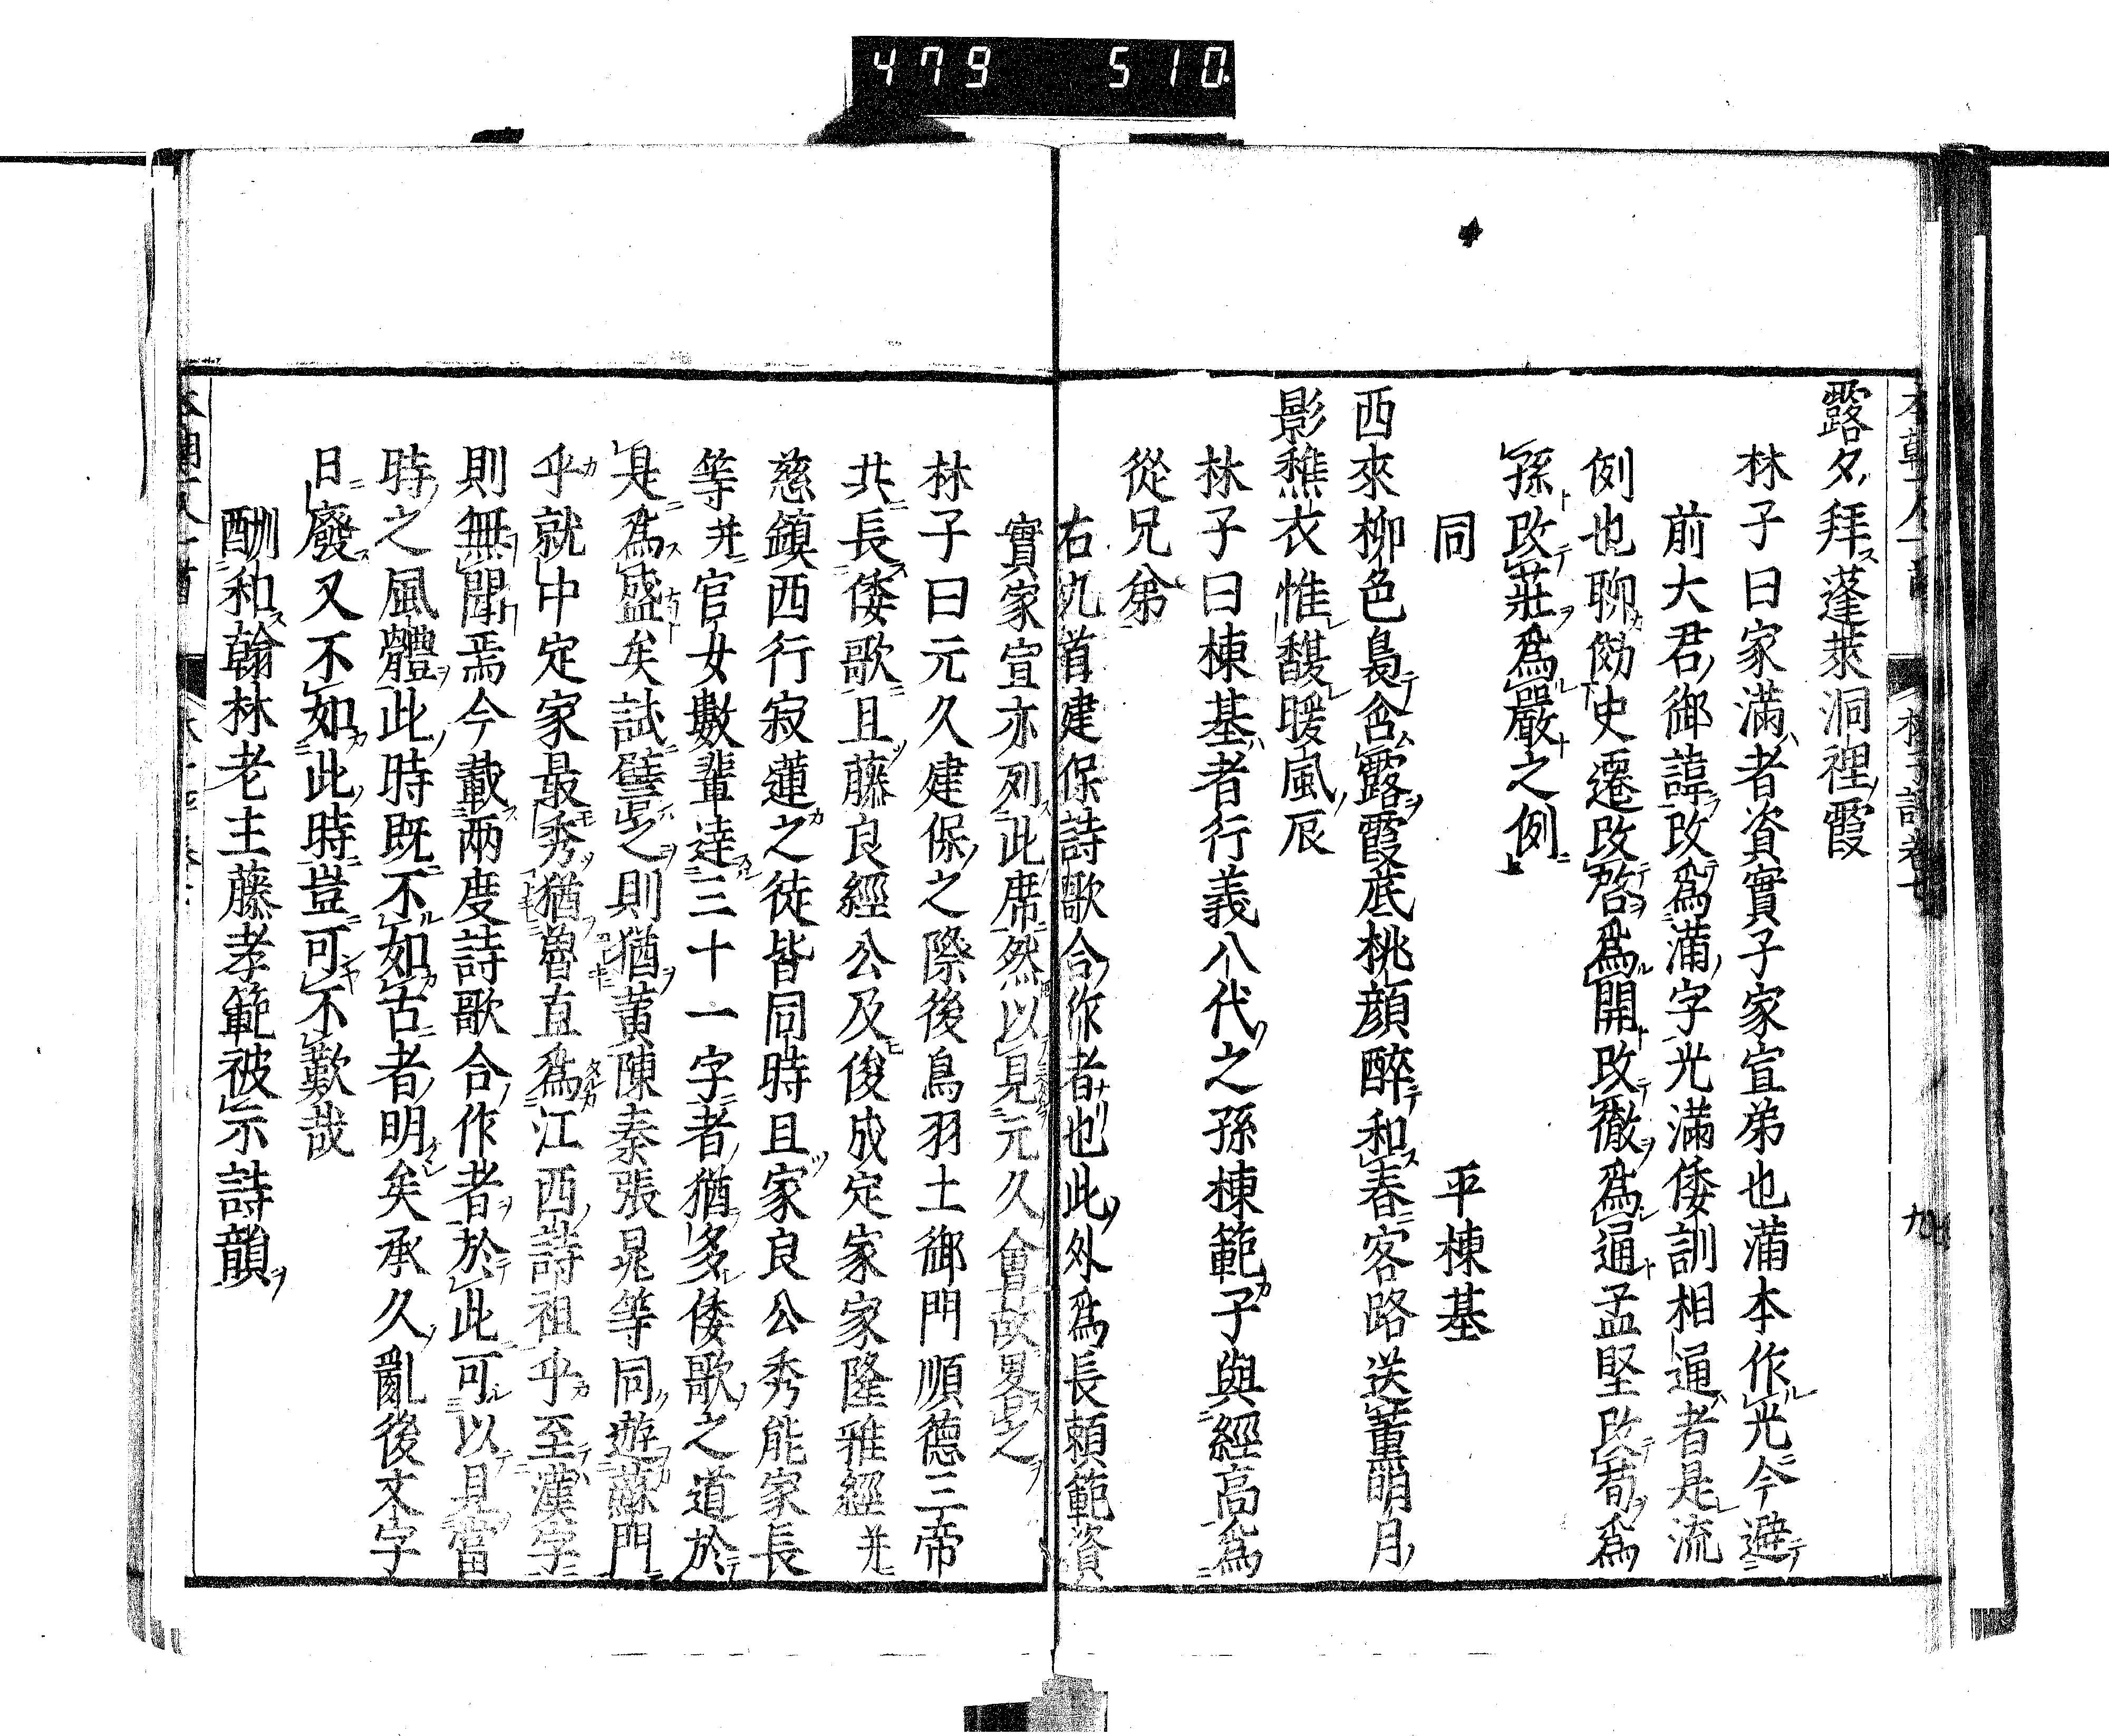 479 510
露夕拜蓬萊洞裡霞
林子曰家滿者資實子家宣弟也滿本作光今避
前大君御諱改爲滿字光滿倭訓相通者是流
例也聊傚史遷改啓爲開改徹爲通孟堅改荀爲
孫改莊爲嚴之例
同 平棟基
西來柳色裊含露霞底桃顏醉和春客路送薰明月
影樵衣惟馥暖風辰
林子曰棟基者行義八代之孫棟範子與經高爲
從兄弟
右九首建保詩歌合作者也此外爲長賴範資
實家宣亦列此席然以見元久會故畧之
林子曰元久建保之際後鳥羽土御門順德三帝
共長倭歌且藤良經公及俊成定家家隆雅經并
慈鎮西行寂蓮之徒皆同時且家良公秀能家長
等并官女數輩達三十一字者猶多倭歌之道於
是爲盛矣試譬之則猶黃陳秦張晁等同遊蘇門
乎就中定家最秀猶魯直爲江西詩祖乎至漢字
則無聞焉今載兩度詩歌合作者於此可以見當
時之風體此時既不如古者明矣承久亂後文字
日廢又不如此時豈可不歎哉
酬和翰林老主藤孝範被示詩韻